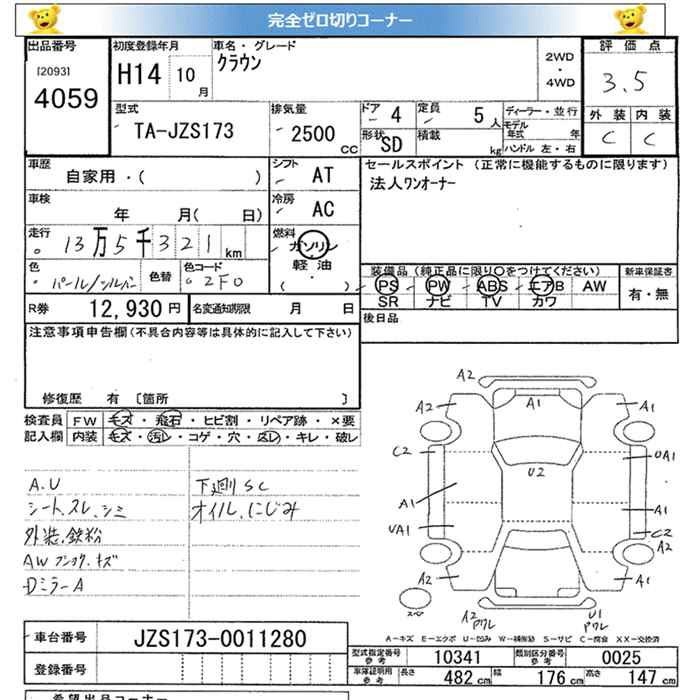 完全ゼロ切りコーナー
出品番号
[2093]
4059
初度登録年月
H14 10月
車名・グレード
クラウン
2WD
・
4WD
評価点
3.5
外装 内装
C C
型式
TA-JZS173
排気量
2500 CC
ドア 4
形状 SD
定員 5人
積載 kg
ディーラー・並行
モデル年式 年
ハンドル 左・右
車歴
自家用・( )
シフト AT
セールスポイント (正常に機能するものに限ります)
法人ワンオーナー
車検
年 月( 日)
冷房 AC
走行
13万5千321 km
燃料
ガソリン
軽油
( ・ )
色
パール/シルバー
色替
色コード
2F0
装備品(純正品に限り○をつけてください)
PS・PW・ABS・エアB・AW
SR ナビ TV カワ
新車保証書
有・無
R券 12,930円
名変通知期限 月 日
後日品
注意事項申告欄(不具合内容等は具体的に記入して下さい)
修復歴 有 [箇所 ]
検査員記入欄
FW キズ・飛石・ヒビ割・リペア跡・×要
内装 キズ・汚レ・コゲ・穴・スレ・キレ・破レ
A.U
シート.スレ.シミ
外装.鉄粉
AW キズ
DミラーA
下廻りSC
オイル.にじみ
A2
A2 A1 A1
C2 UA1
U2
A1 A1
UA1 C2
A2
A2 A1
スペ
A2 U1
ワレ ワレ
A-キズ E-エクボ U-凹み W-補修跡 S-サビ C-腐食 XX-交換済
車台番号 JZS173-0011280
登録番号
型式指定番号 参考 10341
類別区分番号 参考 0025
車庫証明用 参考 長さ 482cm 幅 176cm 高さ 147cm
希望出品コーナー